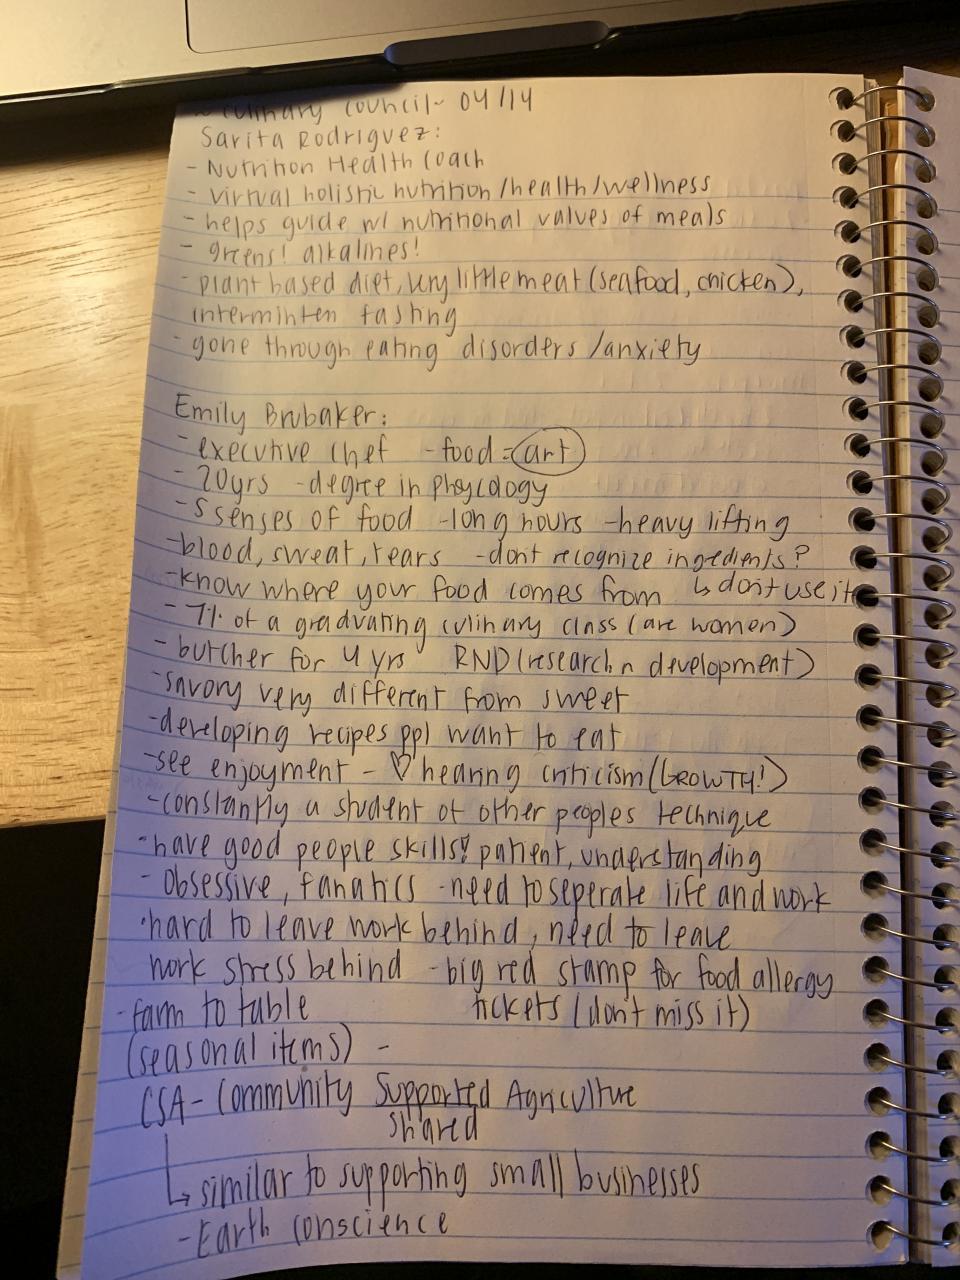 ~ culinary council~ 04/14
Sarita Rodriguez:
- Nutrition Health Coach
- virtual holistic nutrition/health/wellness
- helps guide w/ nutritional values of meals
- greens! alkalines!
- plant based diet, very little meat (seafood, chicken),
interminten fasting
- gone through eating disorders/anxiety
Emily Brubaker:
- executive chef - food = art
- 20yrs - degree in phsycology
- 5 senses of food - long hours - heavy lifting
- blood, sweat, tears - don't recognize ingredients?
- know where your food comes from ↳ don't use it
- 7% of a graduating culinary class (are women)
- butcher for 4 yrs RND (research n development)
- savory very different from sweet
- developing recipes ppl want to eat
- see enjoyment - ♡ hearing criticism (GROWTH!)
- constantly a student of other peoples technique
- have good people skills! patient, understanding
- obsessive, fanatics - need to seperate life and work
· hard to leave work behind, need to leave
work stress behind - big red stamp for food allergy
- farm to table tickets (don't miss it)
(seasonal items) -
CSA - Community Supported Agriculture
shared
↳ similar to supporting small businesses
- Earth conscience